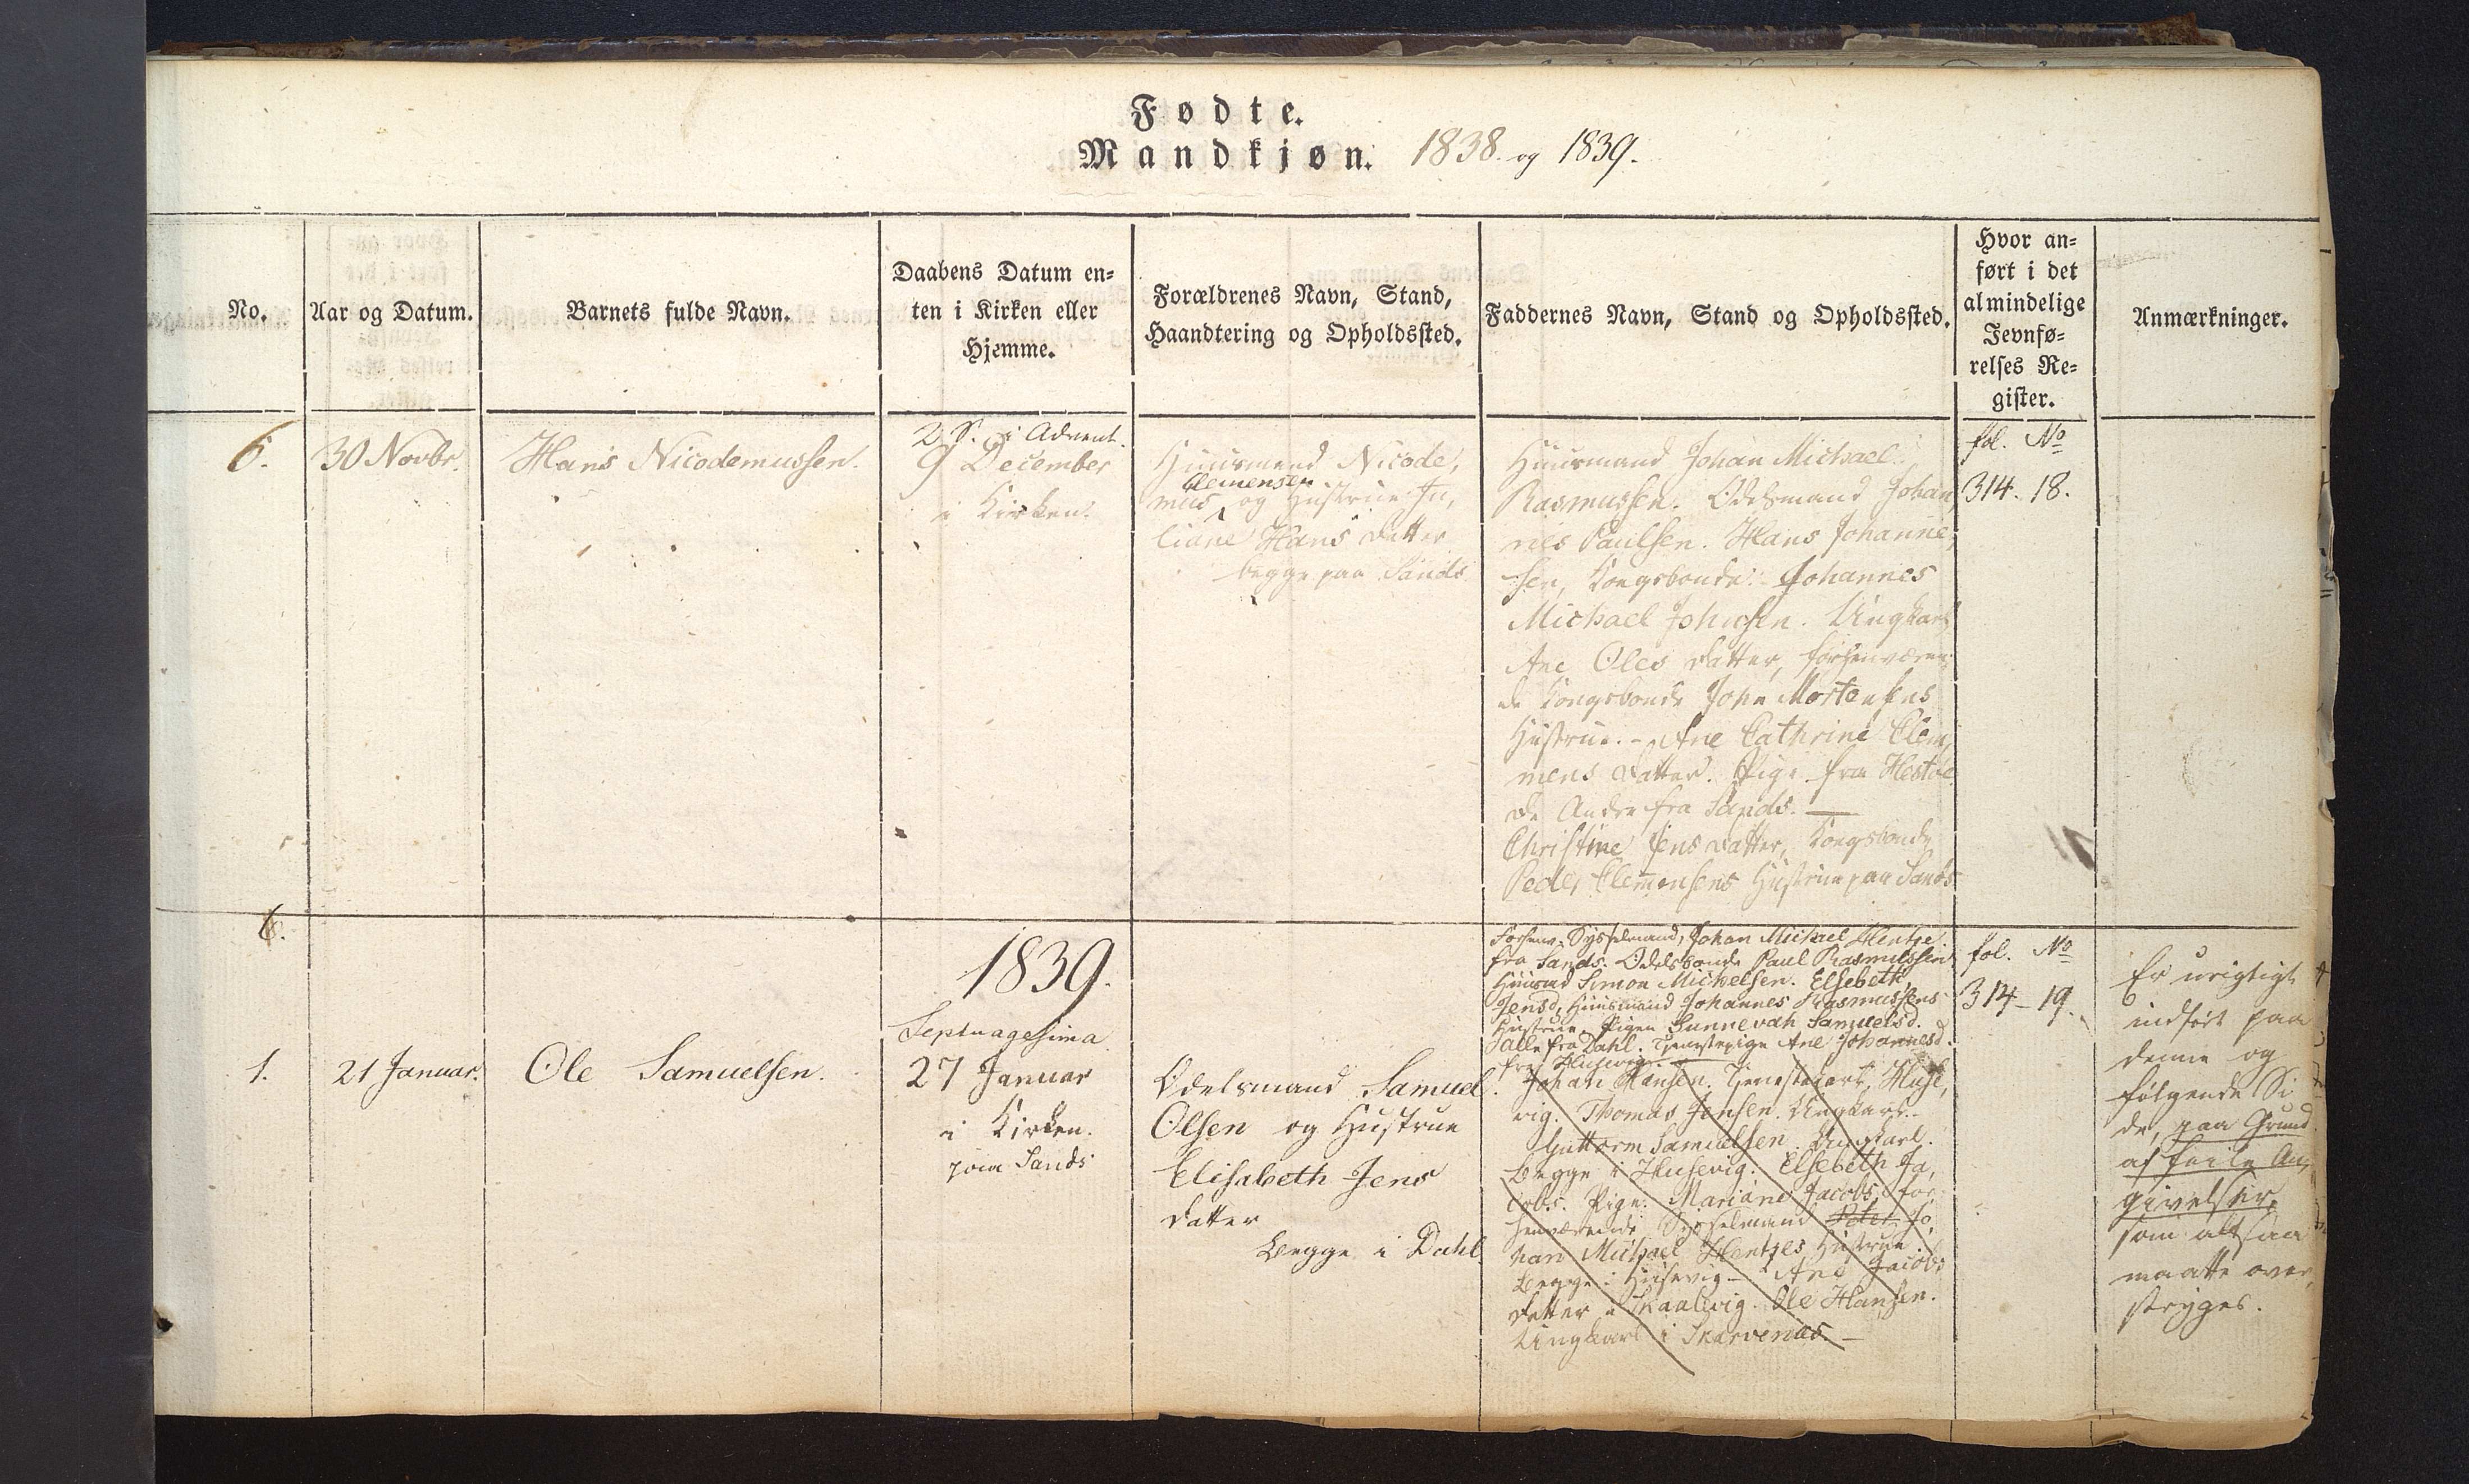 Fødte.
Mandkjøn. 1838. og 1839.
No.
Aar og Datum.
Barnets fulde Navn.
Daabens Datum en-
ten i Kirken eller
Hjemme.
Forældrenes Navn, Stand,
Haandtering og Opholdssted.
Faddernes Navn, Stand og Opholdssted.
Hvor an-
ført i det
almindelige
Jevnfø-
relses Re-
gister.
Anmærkninger.
6.
30 Novbr.
Hans Nicodemussen.
2 S. i Advent.
9 December
i Kirken.
Huusmand Nicode,
Clemensen
mus og Hustrue Ju,
liane Hans Datter
begge paa Sands
Huusmand Johan Michael
Rasmussen. Odelsmand Johan,
nes Paulsen. Hans Johanne,
sen, Kongsbonde. Johannes
Michael Johnsen. Ungkarl
Ane Oles Datter, forhenværen,
de Kongsbonde John Mortensens
Hustrue. - Ane Cathrine Clem,
mens Datter. Pige. fra Hestøe
De Andre fra Sands. —
Christine Jens Datter, Kongsbonde
Peder Clemensens Hustrue paa Sands
fol. No
314. 18.
6.
1839.
1.
21 Januar.
Ole Samuelsen.
Septuagesima
27 Januar
i Kirken.
paa Sands
Odelsmand Samuel
Olsen og Hustrue
Elisabeth Jens
Datter
Begge i Dahl.
Forhenv. Sysselmand, Johan Michael Hentze.
fra Sands. Odelsbonde Paul Rasmussen
Huusmd Simon Michelsen. Elsebeth
Jensd, Huusmand Johannes Rasmussens
Hustrue. Pigen Sunnevah Samuelsd.
Talle fra Dahl. Tjenestepige Ane Johannesd.
fra Husevig.
Johan Hansen. Tjenestekarl, Huse,
vig. Thomas Jensen. Ungkarl.
Guttorm Samuelsen. Ungkarl.
Begge i Husevig. Elsebeth Ja,
cobs. Pige. Mariane Jacobs, for,
henværende Sysselmand Peter Jo,
han Michael Hentzes Hustrue.
Begge i Husevig - Ane Jacobs
Datter i Skaalevig. Ole Hansen.
Ungkarl i Skarvenæs. —
fol. No
314 - 19.
Er urigtigt
indført paa
denne og
følgende Si
de, paa Grund
af feile An,
givelser,
som altsaa
maatte over,
stryges.